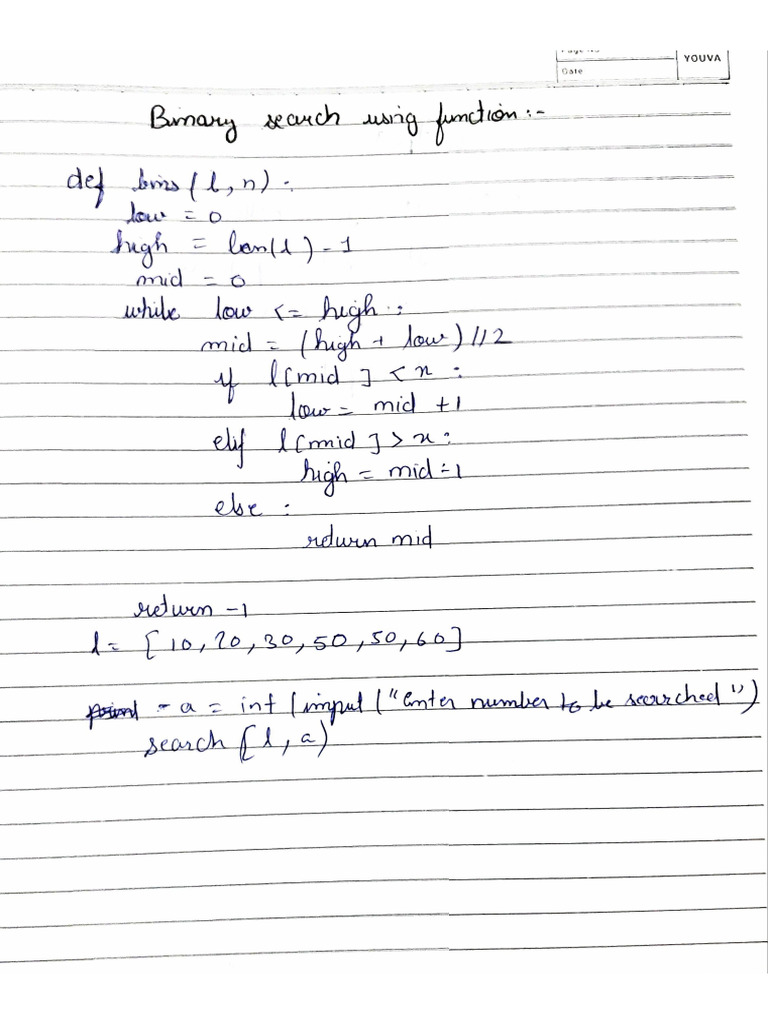 Page No
Date
YOUVA
Binary search using function :-
def bins (l, n) :
low = 0
high = len(l) - 1
mid = 0
while low <= high :
mid = (high + low) // 2
if l[mid ] < n :
low = mid + 1
elif l[mid] > n :
high = mid - 1
else :
return mid
return -1
l = [10, 20, 30, 50, 50, 60]
print - a = int (input ("Enter number to be searched")
search [l, a)